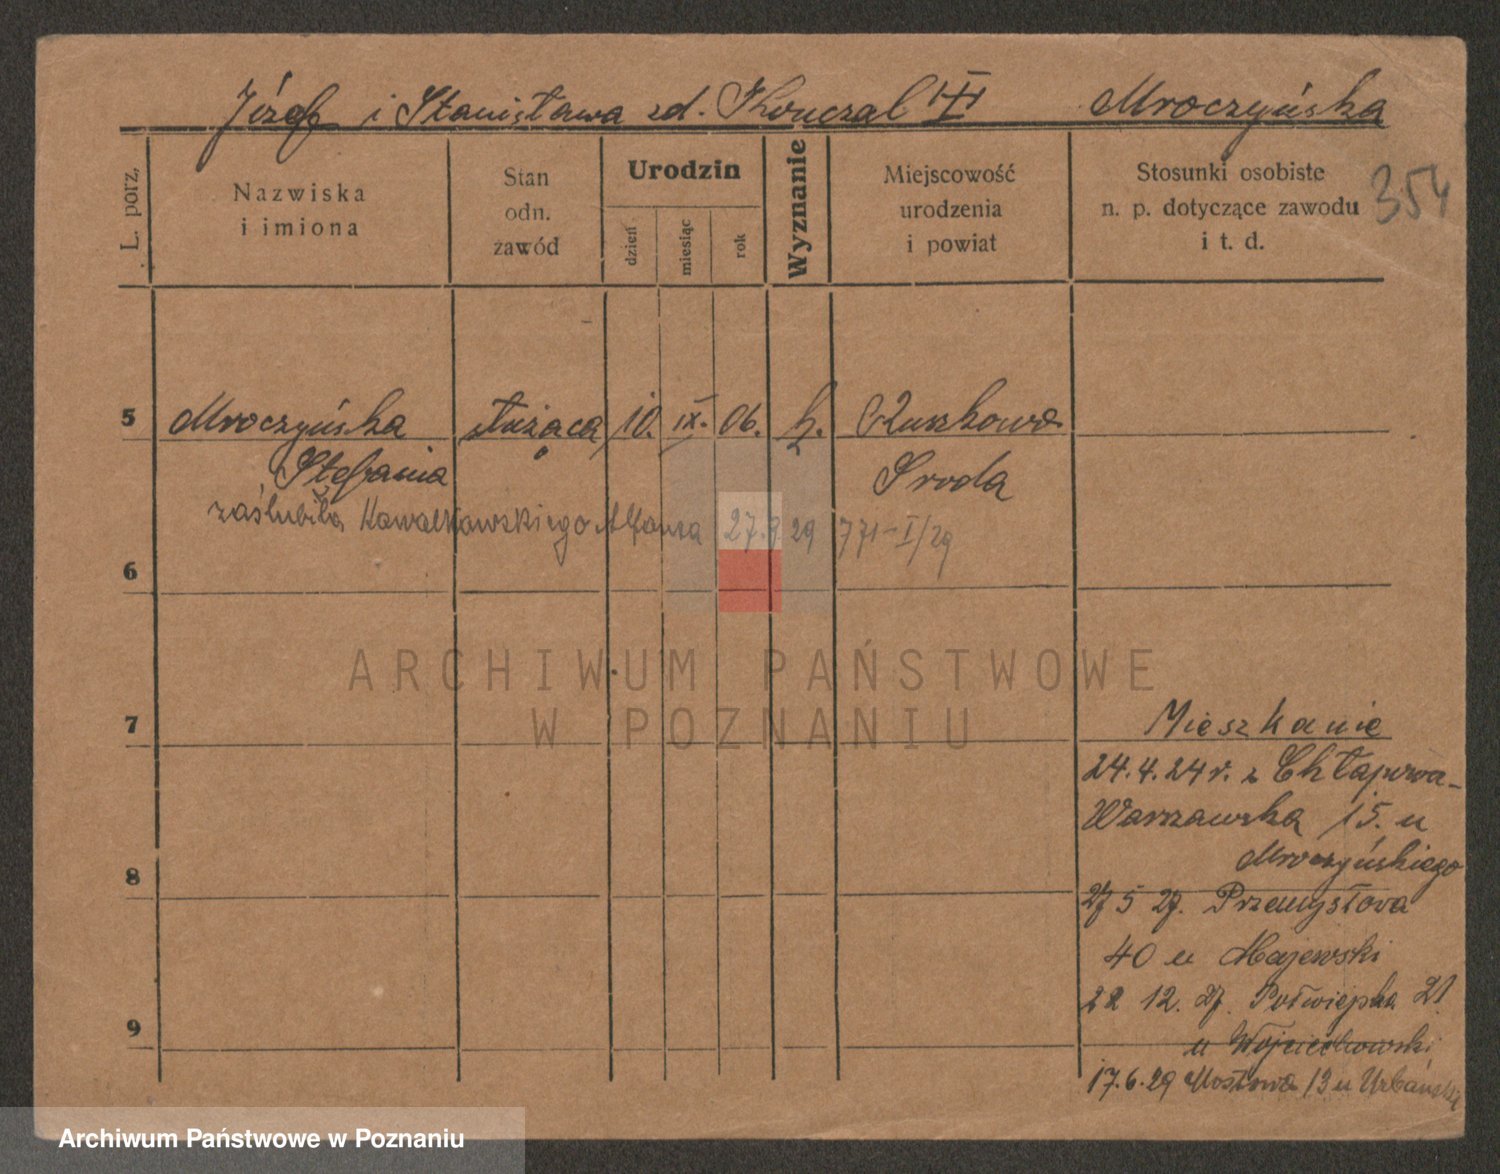 Józef i Stanisława zd. Konczal III Mroczyńska
L. porz.
Nazwiska
i imiona
Stan
odn.
zawód
Urodzin
dzień
miesiąc
rok
Wyznanie
Miejscowość
urodzenia
i powiat
Stosunki osobiste
n. p. dotyczące zawodu
i t. d.
354
5 Mroczyńska służąca 10. IX. 06. k. Ruszkowo
Stefania Sroda
zaślubiła Kawałkowskiego Alfonsa 27.8.29 771-I/29
6
ARCHIWUM PAŃSTWOWE
W POZNANIU
7
Mieszkanie
24.4.24 r. z Chłapowa-
Warszawska 15. u
Mroczyńskiego
8
27 5 27. Przemysłowa
40 u Majewski
28 12. 27. Półwiejska 21
9
u Wojciechowski
17.6.29 Mostowa 13 u Urbański
Archiwum Państwowe w Poznaniu